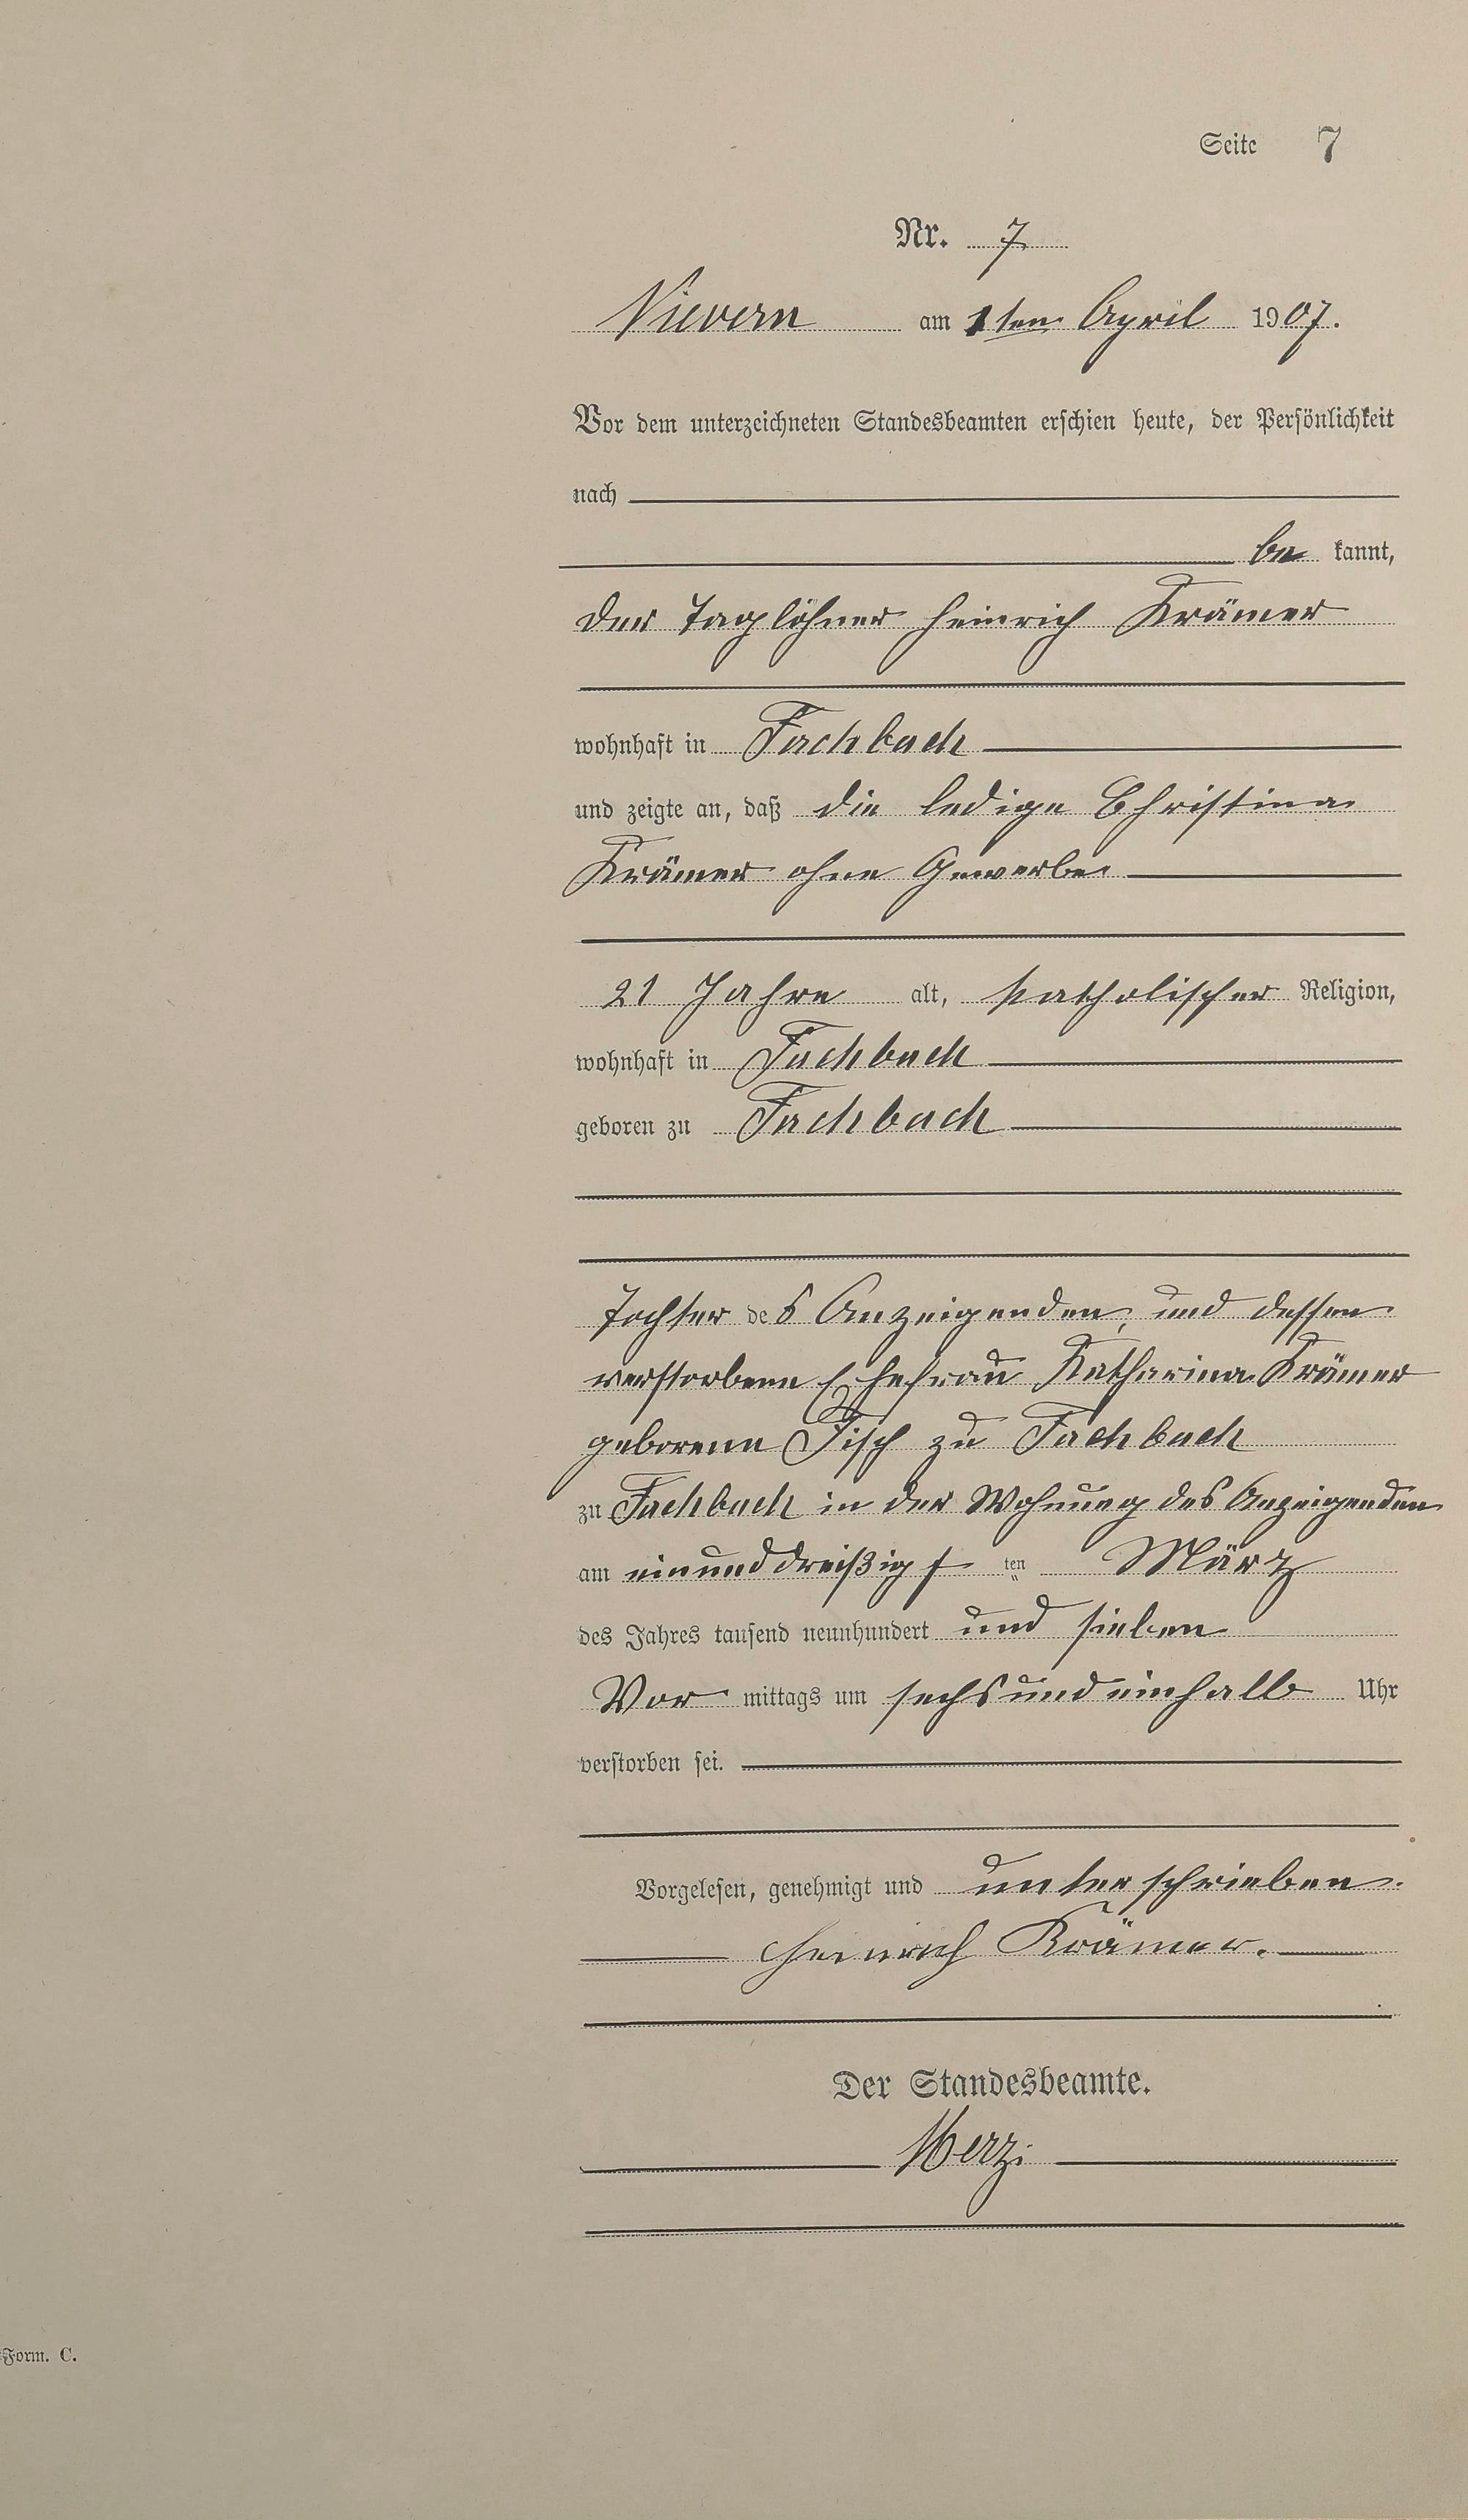 Seite 7
Nr. 7
Nievern am 1ten April 1907.
Vor dem unterzeichneten Standesbeamten erschien heute, der Persönlichkeit
nach
be kannt,
der Taglöhner Heinrich Krämer
wohnhaft in Fachbach
und zeigte an, daß die ledige Christina
Krämer ohne Gewerbe
21 Jahre alt, katholischer Religion,
wohnhaft in Fachbach
geboren zu Fachbach
Tochter des Anzeigenden, und dessen
verstorbene Ehefrau Katharina Krämer
geborene Fisch zu Fachbach
zu Fachbach in der Wohnung des Anzeigenden
am einunddreißigsten März
des Jahres tausend neunhundert und sieben
Vor mittags um sechsundeinhalb Uhr
verstorben sei.
Vorgelesen, genehmigt und unterschrieben.
Heinrich Krämer.
Der Standesbeamte.
Merz.
Form. C.